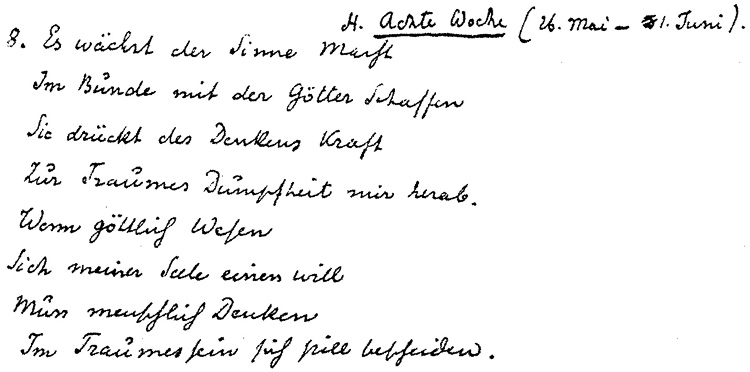 H. Achte Woche (26. Mai – 1. Juni).
8. Es wächst der Sinne Macht
Im Bunde mit der Götter Schaffen
Sie drückt des Denkens Kraft
Zur Traumes Dumpfheit mir herab.
Wenn göttlich Wesen
Sich meiner Seele einen will
Muss menschlich Denken
Im Traumessein sich still bescheiden.